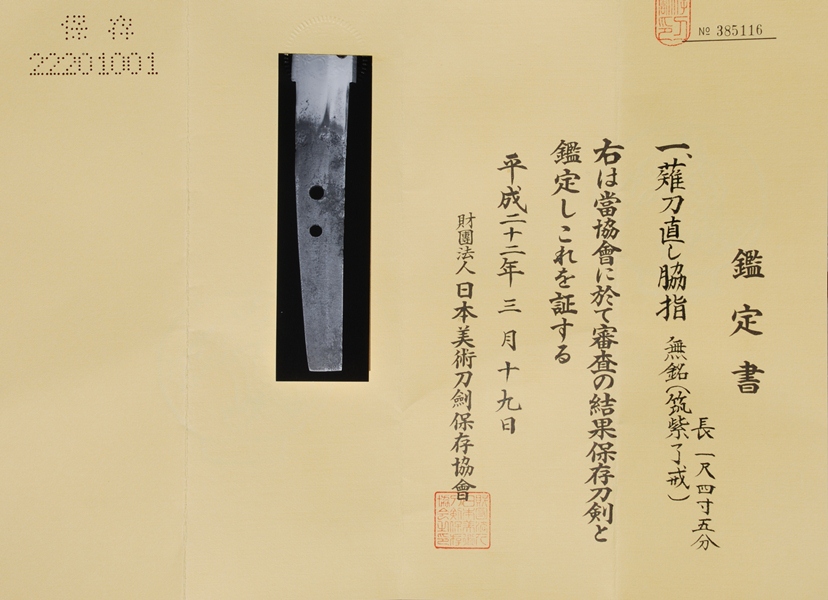 № 385116
鑑定書
一、薙刀直し脇指 無銘(筑紫了戒)
長一尺四寸五分
右は當協會に於て審査の結果保存刀剣と
鑑定しこれを証する
平成二十二年三月十九日
財團法人日本美術刀劍保存協會
保存
22201001